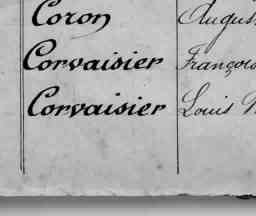 Coron Augus
Corvaisier François
Corvaisier Louis